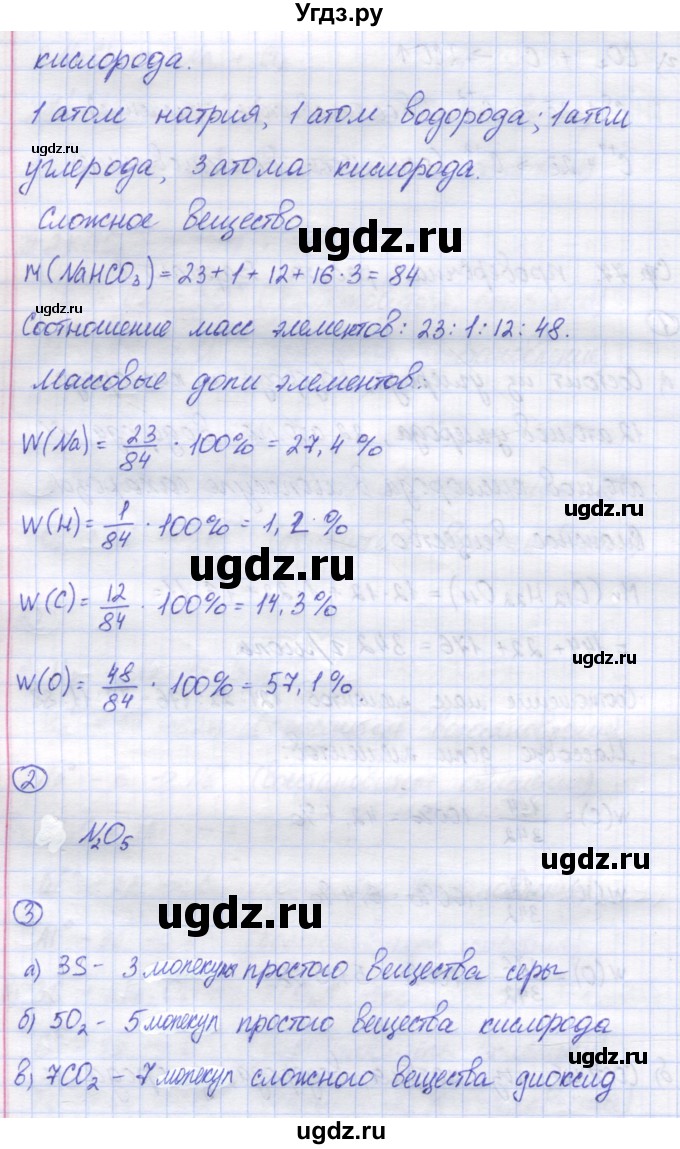 Угдз.ру
кислорода.
1 атом натрия, 1 атом водорода; 1 атом
углерода, 3 атома кислорода.
Сложное вещество
ugdz.ru
ugdz.ru
M(NaHCO₃) = 23 + 1 + 12 + 16 · 3 = 84
ugdz.ru
Соотношение масс элементов: 23 : 1 : 12 : 48.
Массовые доли элементов.
ugdz.ru
W(Na) = 23/84 · 100% = 27,4 %
ugdz.ru
W(H) = 1/84 · 100% = 1,2 %
ugdz.ru
W(C) = 12/84 · 100% = 14,3 %
ugdz.ru
W(O) = 48/84 · 100% = 57,1 %.
2
N₂O₅
ugdz.ru
3
ugdz.ru
а) 3S – 3 молекулы простого вещества серы
б) 5O₂ – 5 молекул простого вещества кислорода
ugdz.ru
в) 7CO₂ – 7 молекул сложного вещества диоксид
ugdz.ru